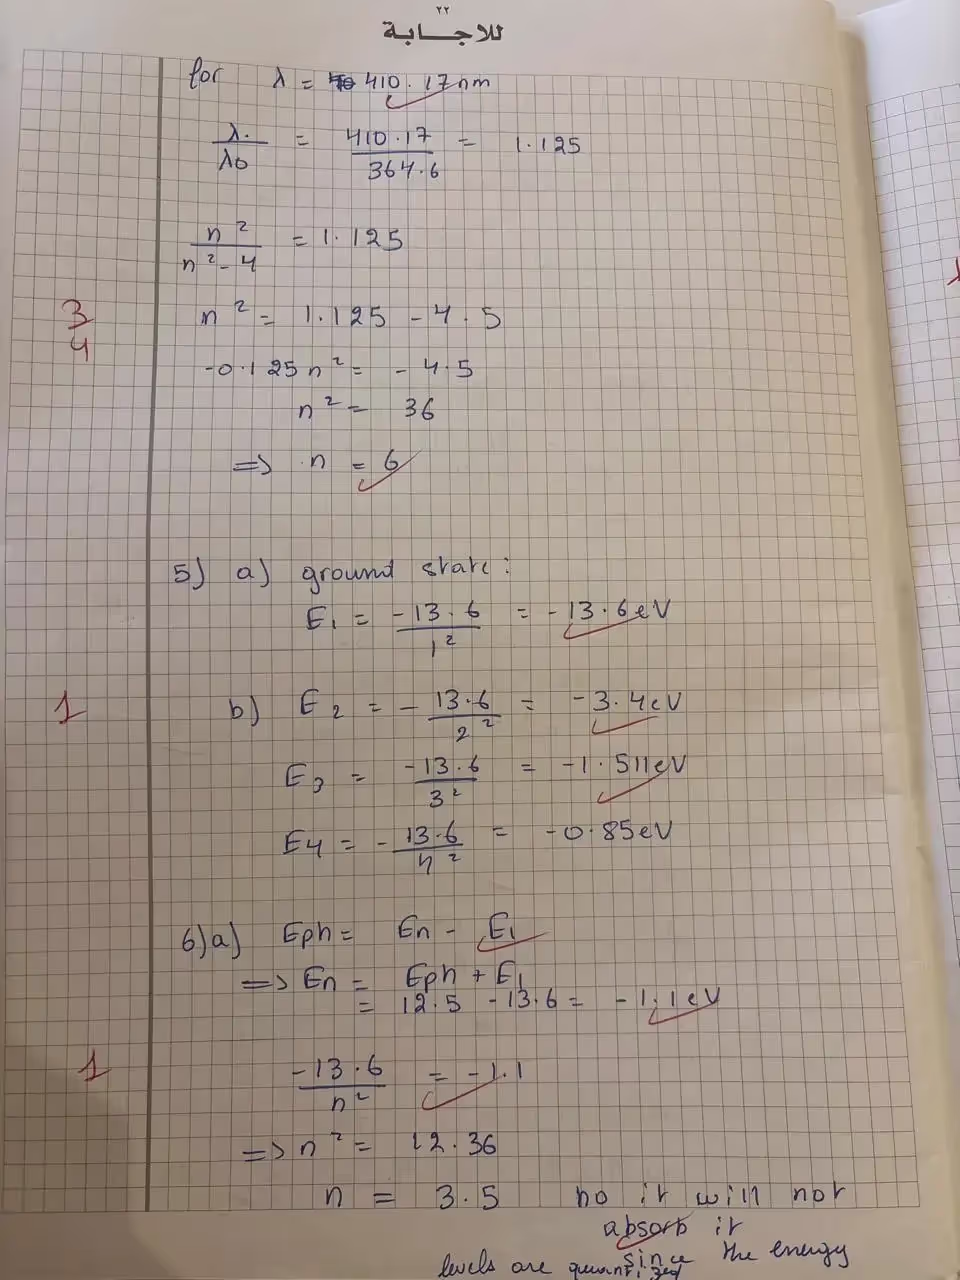 ٢٢
للاجابة
for λ = 410.17nm
λ/λ0 = 410.17/364.6 = 1.125
n²/n²-4 = 1.125
3/4
n² = 1.125 - 4.5
-0.125n² = -4.5
n² = 36
=> n = 6
5) a) ground state:
E1 = -13.6/1² = -13.6eV
1
b) E2 = -13.6/2² = -3.4eV
E3 = -13.6/3² = -1.511eV
E4 = -13.6/4² = -0.85eV
6)a) Eph = En - E1
=> En = Eph + E1
= 12.5 - 13.6 = -1.1eV
1
-13.6/n² = -1.1
=> n² = 12.36
n = 3.5 no it will not
absorb it
since the energy
levels are quantized